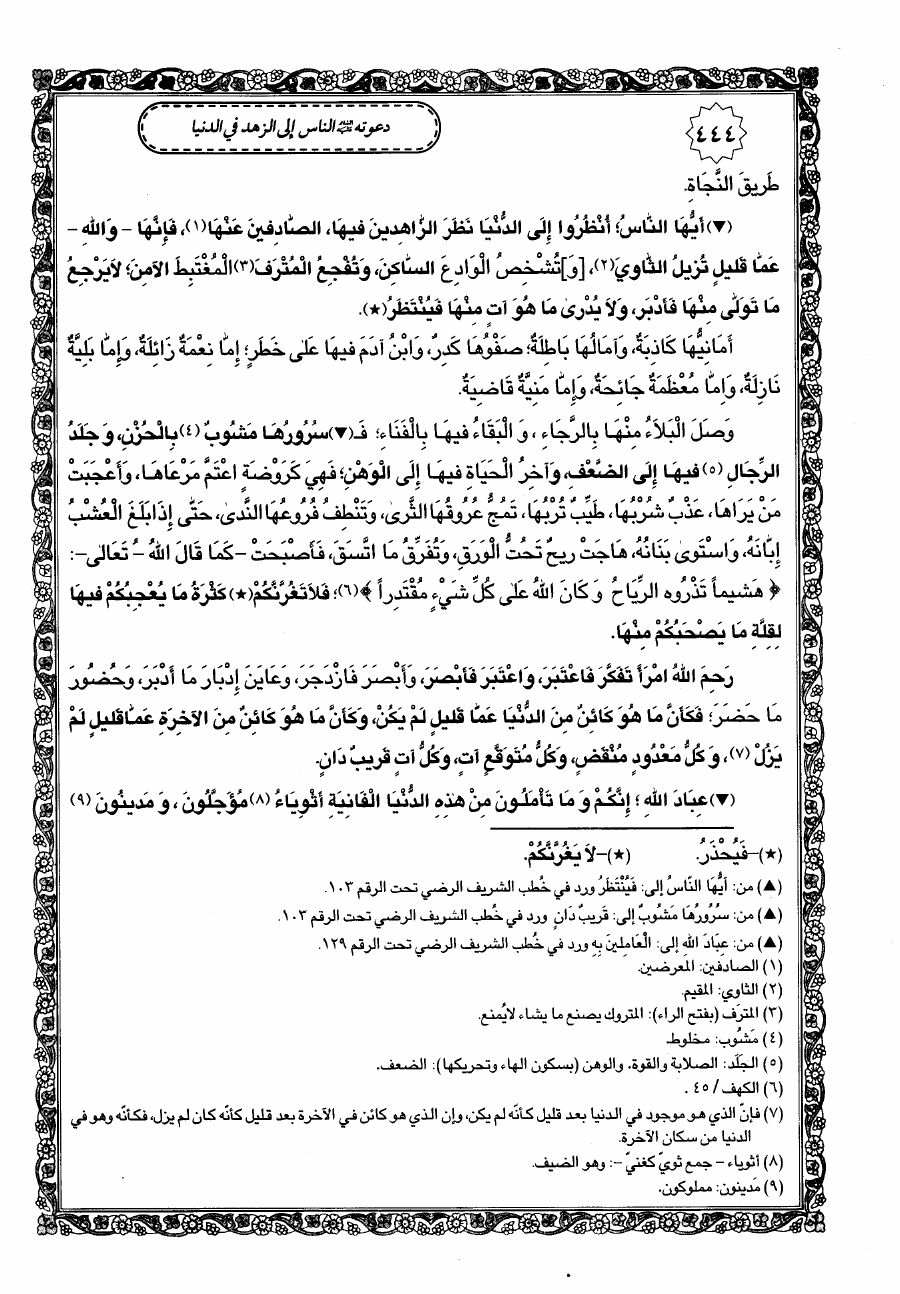 ٤٤٤
دعوته عليه السلام الناس إلى الزهد في الدنيا
طَريقَ النَّجَاةِ.
(▼) أَيُّهَا النَّاسُ؛ اُنْظُرُوا إِلَى الدُّنْيَا نَظَرَ الزَّاهِدينَ فيهَا، الصَّادِفينَ عَنْهَا(١)، فَإِنَّهَا - وَاللهِ -
عَمَّا قَليلٍ تُزيلُ الثَّاوِيَ(٢)، [وَ]تُشْخِصُ الْوَادِعَ السَّاكِنَ، وَتُفْجِعُ الْمُتْرَفَ(٣)الْمُغْتَبِطَ الآمِنَ؛ لاَيَرْجِعُ
مَا تَوَلّٰى مِنْهَا فَأَدْبَرَ، وَلاَ يُدْرىٰ مَا هُوَ آتٍ مِنْهَا فَيُنْتَظَرُ(★).
أَمَانِيُّهَا كَاذِبَةٌ، وَآمَالُهَا بَاطِلَةٌ؛ صَفْوُهَا كَدِرٌ، وَابْنُ آدَمَ فيهَا عَلىٰ خَطَرٍ؛ إِمَّا نِعْمَةٌ زَائِلَةٌ، وَإِمَّا بَلِيَّةٌ
نَازِلَةٌ، وَإِمَّا مُعْظَمَةٌ جَائِحَةٌ، وَإِمَّا مَنِيَّةٌ قَاضِيَةٌ.
وَصَلَ الْبَلاَءُ مِنْهَا بِالرَّجَاءِ، وَ الْبَقَاءُ فيهَا بِالْفَنَاءِ؛ فَـ(▼)سُرُورُهَا مَشُوبٌ(٤)بِالْحُزْنِ، وَ جَلَدُ
الرِّجَالِ(٥)فيهَا إِلَى الضَّعْفِ، وَآخِرُ الْحَيَاةِ فيهَا إِلَى الْوَهْنِ؛ فَهِيَ كَرَوْضَةٍ اعْتَمَّ مَرْعَاهَا، وَأَعْجَبَتْ
مَنْ يَرَاهَا، عَذْبٌ شُرْبُهَا، طَيِّبٌ تُرْبُهَا، تَمُجُّ عُرُوقُهَا الثَّرىٰ، وَتَنْطِفُ فُرُوعُهَا النَّدىٰ، حَتّٰى إِذَا بَلَغَ الْعُشْبُ
إِبَّانَهُ، وَاسْتَوىٰ بَنَانُهُ، هَاجَتْ ريحٌ تَحُتُّ الْوَرَقَ، وَتُفَرِّقُ مَا اتَّسَقَ، فَأَصْبَحَتْ -كَمَا قَالَ اللهُ - تَعَالىٰ-:
﴿ هَشيماً تَذْرُوهُ الرِّيَاحُ وَ كَانَ اللهُ عَلىٰ كُلِّ شَيْءٍ مُقْتَدِراً ﴾(٦)؛ فَلاَتَغُرَّنَّكُمْ(★) كَثْرَةُ مَا يُعْجِبُكُمْ فيهَا
لِقِلَّةِ مَا يَصْحَبُكُمْ مِنْهَا.
رَحِمَ اللهُ امْرَأً تَفَكَّرَ فَاعْتَبَرَ، وَاعْتَبَرَ فَأَبْصَرَ، وَأَبْصَرَ فَازْدَجَرَ، وَعَايَنَ إِدْبَارَ مَا أَدْبَرَ، وَحُضُورَ
مَا حَضَرَ؛ فَكَأَنَّ مَا هُوَ كَائِنٌ مِنَ الدُّنْيَا عَمَّا قَليلٍ لَمْ يَكُنْ، وَكَأَنَّ مَا هُوَ كَائِنٌ مِنَ الآخِرَةِ عَمَّاقَليلٍ لَمْ
يَزَلْ(٧)، وَ كُلُّ مَعْدُودٍ مُنْقَضٍ، وَكُلُّ مُتَوَقَّعٍ آتٍ، وَكُلُّ آتٍ قَريبٌ دَانٍ.
(▼)عِبَادَ اللهِ ؛ إِنَّكُمْ وَ مَا تَأْمَلُونَ مِنْ هٰذِهِ الدُّنْيَا الْفَانِيَةِ أَثْوِيَاءُ(٨)مُؤَجَّلُونَ ، وَ مَدينُونَ(٩)
(★)-فَيُحْذَرُ. (★)-لاَ يَغُرَّنَّكُمْ.
(▲) من: أَيُّهَا النَّاسُ إلى: فَيُنْتَظَرُ ورد في خُطب الشريف الرضي تحت الرقم ١٠٣.
(▲) من: سُرُورُهَا مَشُوبٌ إلى: قَريبٌ دَانٍ ورد في خُطب الشريف الرضي تحت الرقم ١٠٣.
(▲) من: عِبَادَ اللهِ إلى: الْعَامِلينَ بِهِ ورد في خُطب الشريف الرضي تحت الرقم ١٢٩.
(١) الصادفين: المعرضين.
(٢) الثاوي: المقيم.
(٣) المترَف (بفتح الراء): المتروك يصنع ما يشاء لايُمنع.
(٤) مَشُوب: مخلوط.
(٥) الجلَد: الصلابة والقوة. والوهن (بسكون الهاء وتحريكها): الضعف.
(٦) الكهف / ٤٥ .
(٧) فإنّ الذي هو موجود في الدنيا بعد قليل كأنّه لم يكن، وإن الذي هو كائن في الآخرة بعد قليل كأنّه كان لم يزل، فكأنّه وهو في
الدنيا من سكان الآخرة.
(٨) أثوياء - جمع ثويّ كغنيّ -: وهو الضيف.
(٩) مَدينون: مملوكون.